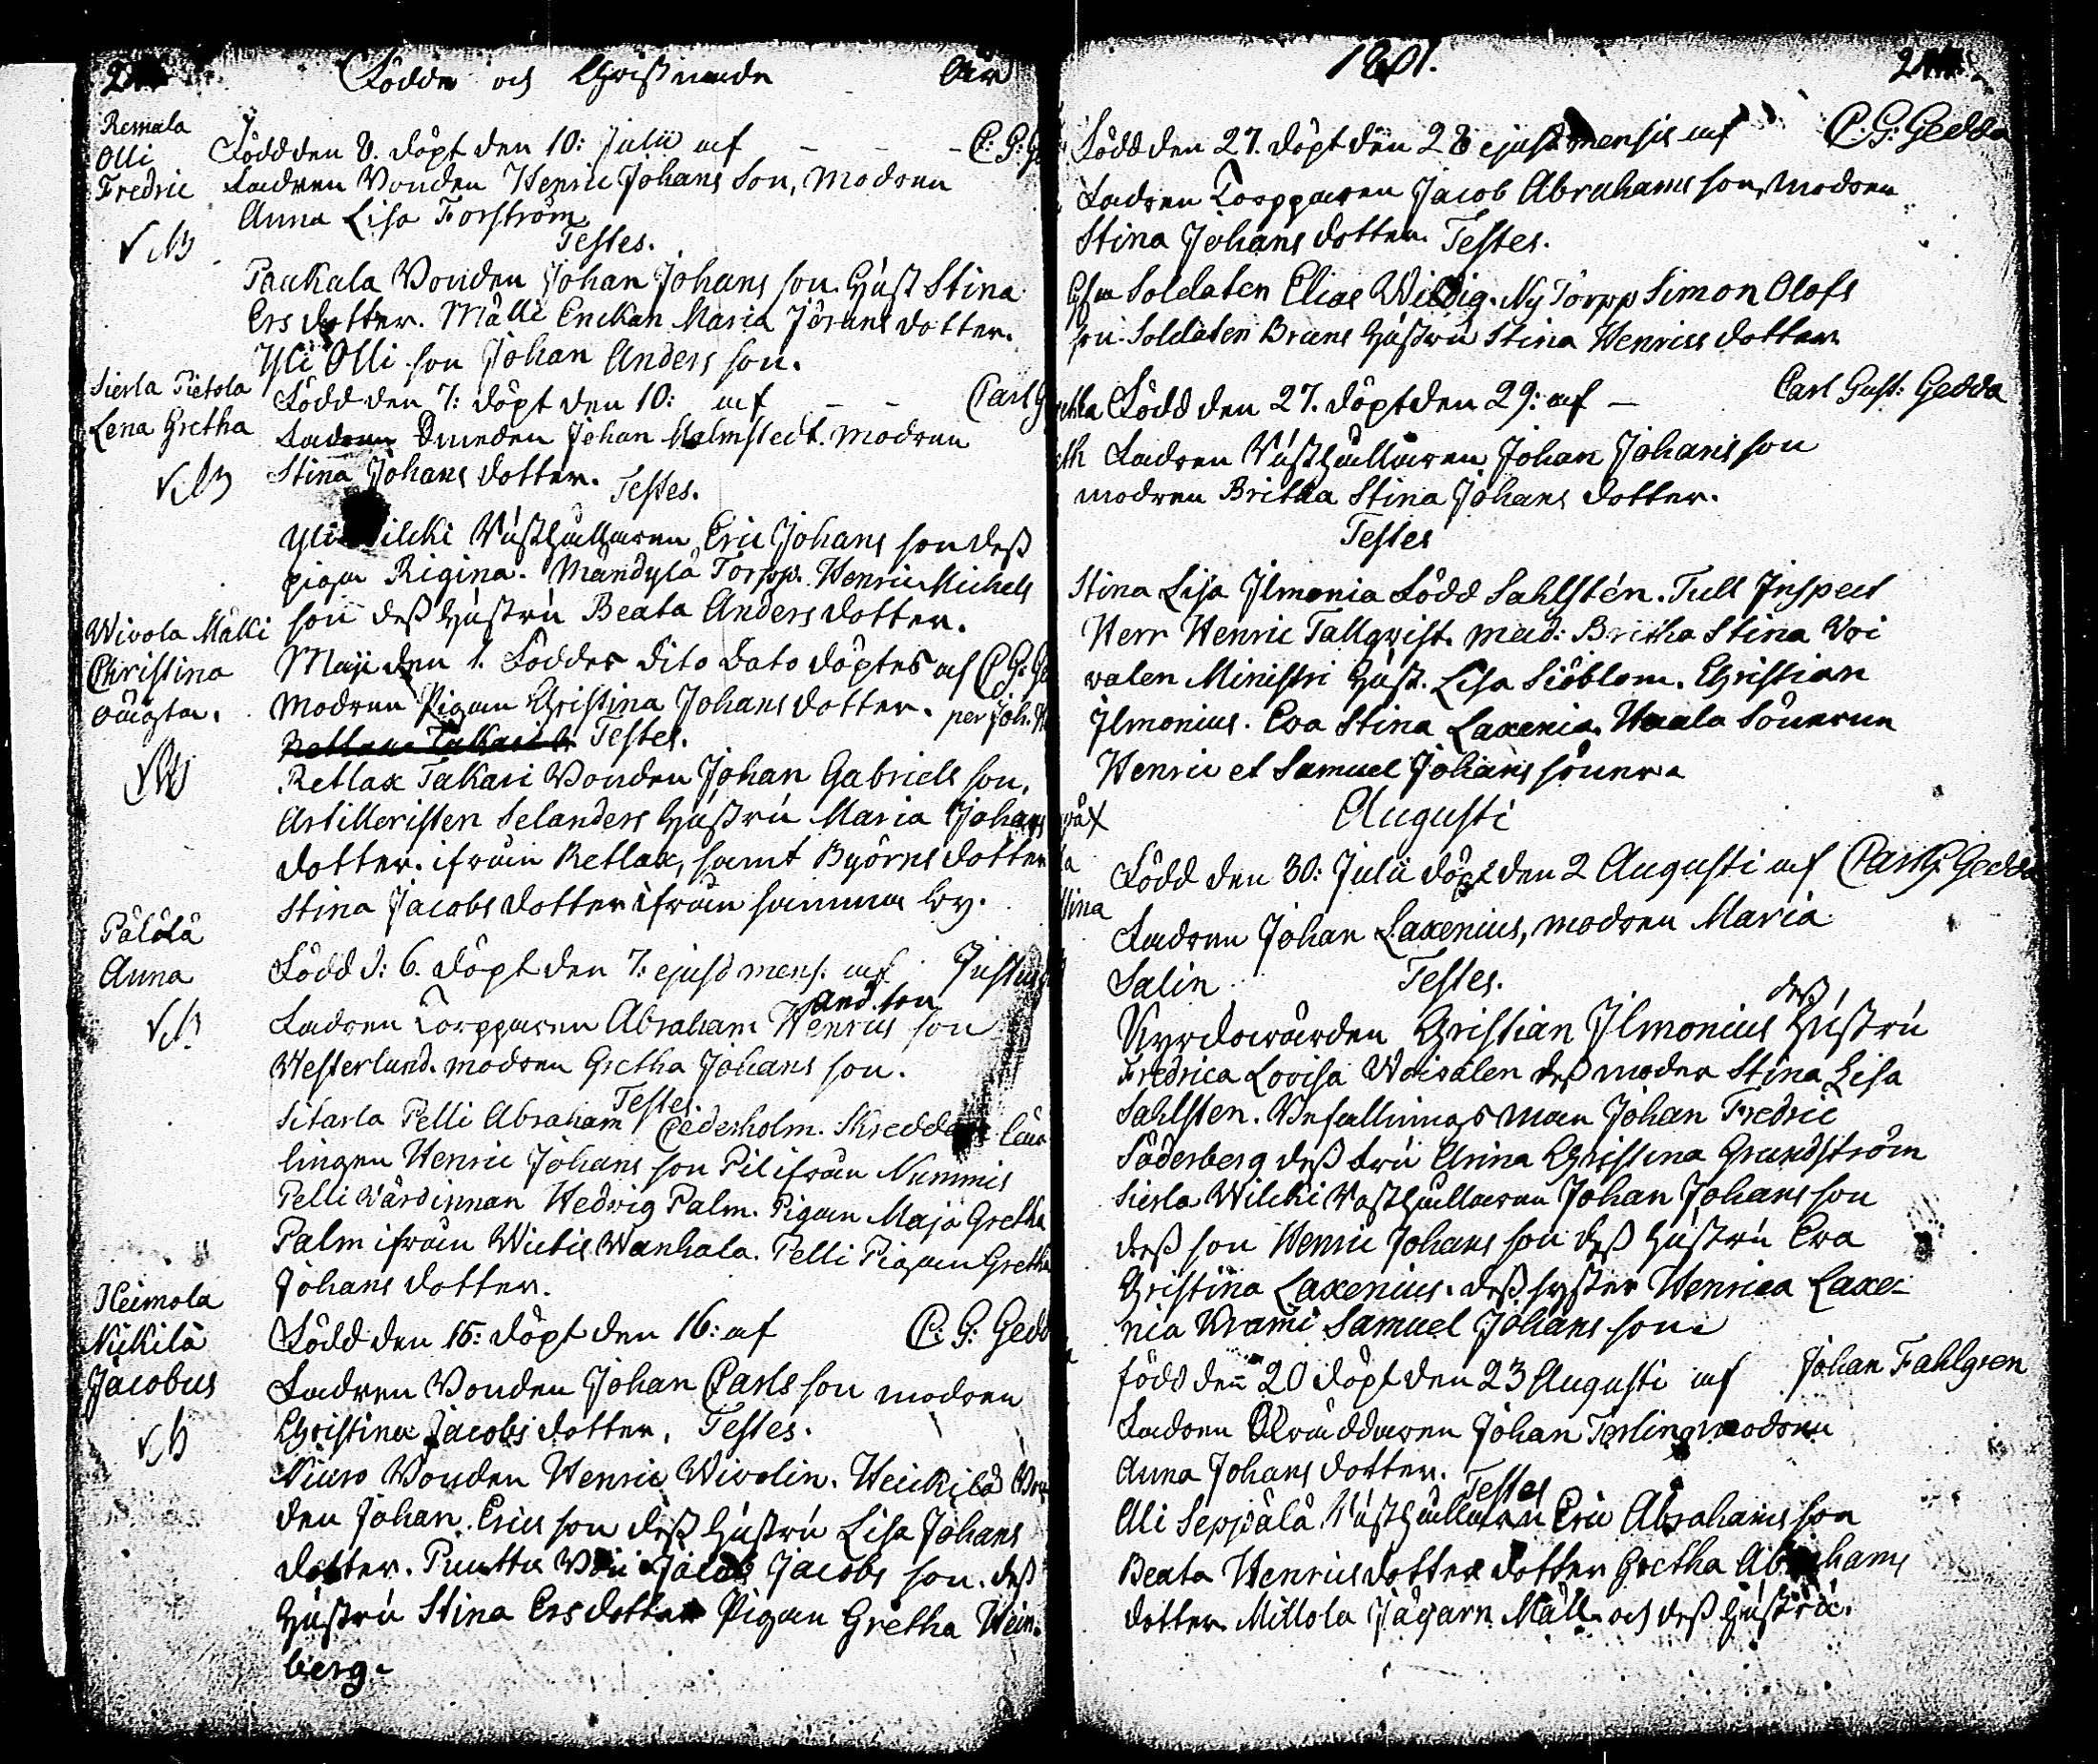 Födde och Christnade Åhr
Remala
Olli
Fredric
Född den 8. döpt den 10: Julii af - - - C: G:
Fadren Bonden Henric Johans Son, Modren
Anna Lisa Forström
Testes.
Paukala Bonden Johan Johans son. Hust Stina
Ers dotter. Målli Enckan Maria Jörans dotter.
Yli Olli son Johan Anders son.
Sierla Pietola
Lena Gretha
Född den 7: döpt den 10: af - - Carl G
Fadren Johan Malmstedt. Modren
Stina Johans dotter. Testes.
Yli Wilcki Rusthållaren Eric Johans son dess
piga Rigina. Mandylä Torpp. Henric Michels
son dess Hustru Beata Anders dotter.
Wivola Målli
Christina
oägta.
Maji den 1. Föddes dito dato döptes af C G: Ge
Modren Pigan Christina Johans dotter. per Joh.
Testes.
Retlax Takari Bonden Johan Gabriels son,
Artilleristen Selanders Hustru Maria Johans
dotter. ifrån Retlax, samt Byörns dotter
Stina Jacobs dotter ifrån samma by.
Pälölä
Anna
Född d: 6. döpt den 7: ejusd mens: af Justus
And. son
Fadren Torpparen Abraham Henrics son
Westerlund. modren Gretha Johans son.
Testes.
Sitarla Pelli Abraham Cederholm. Skreddare lär
lingen Henric Johans son Pil ifrån Nummis
Pelli Wärdinnan Hedvig Palm. Pigan Maja Gretha
Palm ifrån Wictis Wanhala. Pelli Pigan Gretha
Johans dotter.
Heimola
Nickilä
Jacobus
Född den 15: döpt den 16: af C: G: Gedd
Fadren Bonden Johan Carls son modren
Christina Jacobs dotter. Testes.
Niuro Bonden Henric Wivolin. Heickilä Bon
den Johan Erics son dess Hustru Lisa Johans
dotter. Puutta Jacob Jacobs son. dess
Hustru Stina Ers dotter Pigan Gretha Wein-
berg.
1801.
Född den 27. döpt den 28 ejusd mensis af C: G: Gedda
Fadren Torpparen Jacob Abrahams son, modren
Stina Johans dotter. Testes.
Soldaten Elias Wildig. Ny Torpp Simon Olofs
son. Soldaten Bruns Hustru Stina Henrics dotter
Född den 27. döpt den 29: af - Carl Gust: Gedda
Fadren Rusthållaren Johan Johans son
modren Britha Stina Johans dotter.
Testes
Stina Lisa Ilmonia Född Sahlstén. Tull Inspect
Herr Henric Tallqvist. mad: Britha Stina Voi
valen Ministri Hust. Lisa Siöblom. Christian
Ilmonius. Eva Stina Laxenia. Uuala Sönerne
Henric et Samuel Johans söner.
Augusti
Född den 30: Julii döpt den 2 Augusti af Carl G: Gedda
Fadren Johan Laxenius, modren Maria
Salin Testes.
dess
Kyrckowärden Christian Ilmonius Hustru
Fredrica Lovisa Woivalen dess moder Stina Lisa
Sahlsten. Befallningsman Johan Fredric
Söderberg dess Fru Anna Christina Grundström
Sierla Wilcki Rusthållaren Johan Johans son
dess son Henric Johans son dess Hustru Eva
Christina Laxenius. dess syster Henrica Laxe-
nia Samuel Johans son.
född den 20 döpt den 23 Augusti af Johan Fahlgren
Fadren Skräddaren Johan Terling modren
Anna Johans dotter.
Testes
Ali Seppälä Rusthållaren Eric Abrahams son
Beata Henrics dotter dotter Gretha Abrahams
dotter. Millola Jägarn Mäll och dess Hustru.